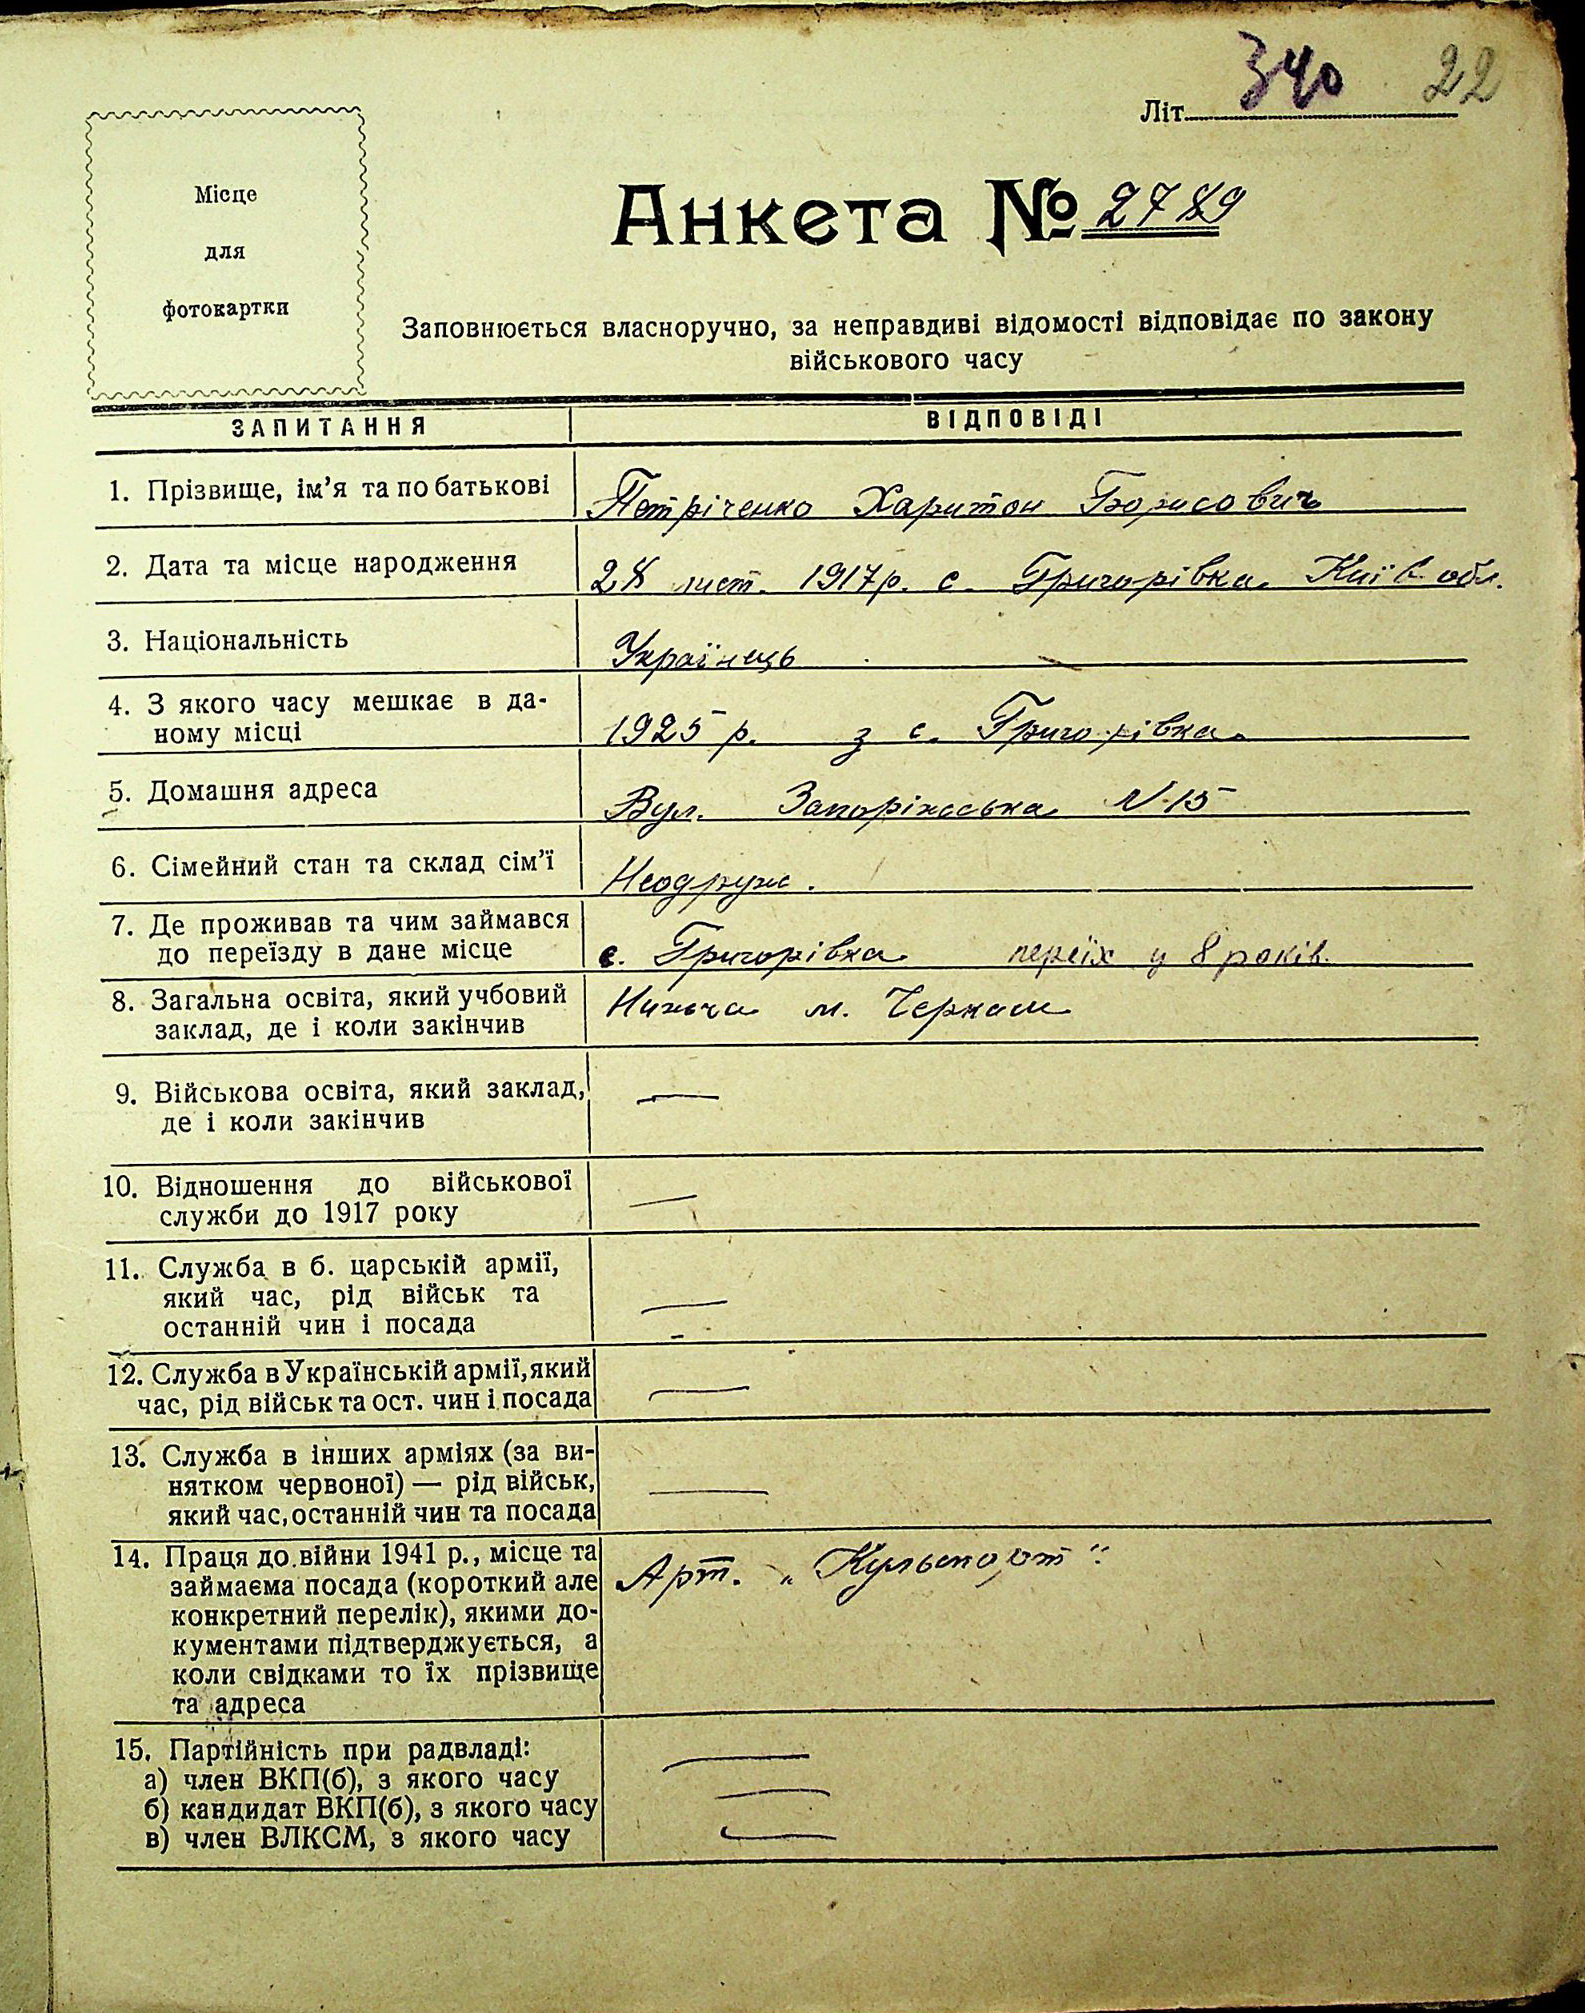 340 22
Літ.
Місце
для
фотокартки
Анкета № 2789
Заповнюється власноручно, за неправдиві відомості відповідає по закону
військового часу
ЗАПИТАННЯ ВІДПОВІДІ
1. Прізвище, ім'я та по батькові Петріченко Харитон Борисович
2. Дата та місце народження 28 лист. 1917р. с. Григорівка Київ обл.
3. Національність Українець
4. З якого часу мешкає в да-
ному місці 1925 р. з с. Григорівка
5. Домашня адреса Вул. Запоріжська N 15
6. Сімейний стан та склад сім'ї Неодруж.
7. Де проживав та чим займався
до переїзду в дане місце с. Григорівка переїх у 8 років.
8. Загальна освіта, який учбовий Нижча м. Черкаси
заклад, де і коли закінчив
9. Військова освіта, який заклад, —
де і коли закінчив
10. Відношення до військової —
служби до 1917 року
11. Служба в б. царській армії,
який час, рід військ та —
останній чин і посада
12. Служба в Українській армії, який —
час, рід військ та ост. чин і посада
13. Служба в інших арміях (за ви-
нятком червоної) — рід військ, —
який час, останній чин та посада
14. Праця до війни 1941 р., місце та Арт. „Культспорт“
займаєма посада (короткий але
конкретний перелік), якими до-
кументами підтверджується, а
коли свідками то їх прізвище
та адреса
15. Партійність при радвладі: —
а) член ВКП(б), з якого часу
б) кандидат ВКП(б), з якого часу —
в) член ВЛКСМ, з якого часу —